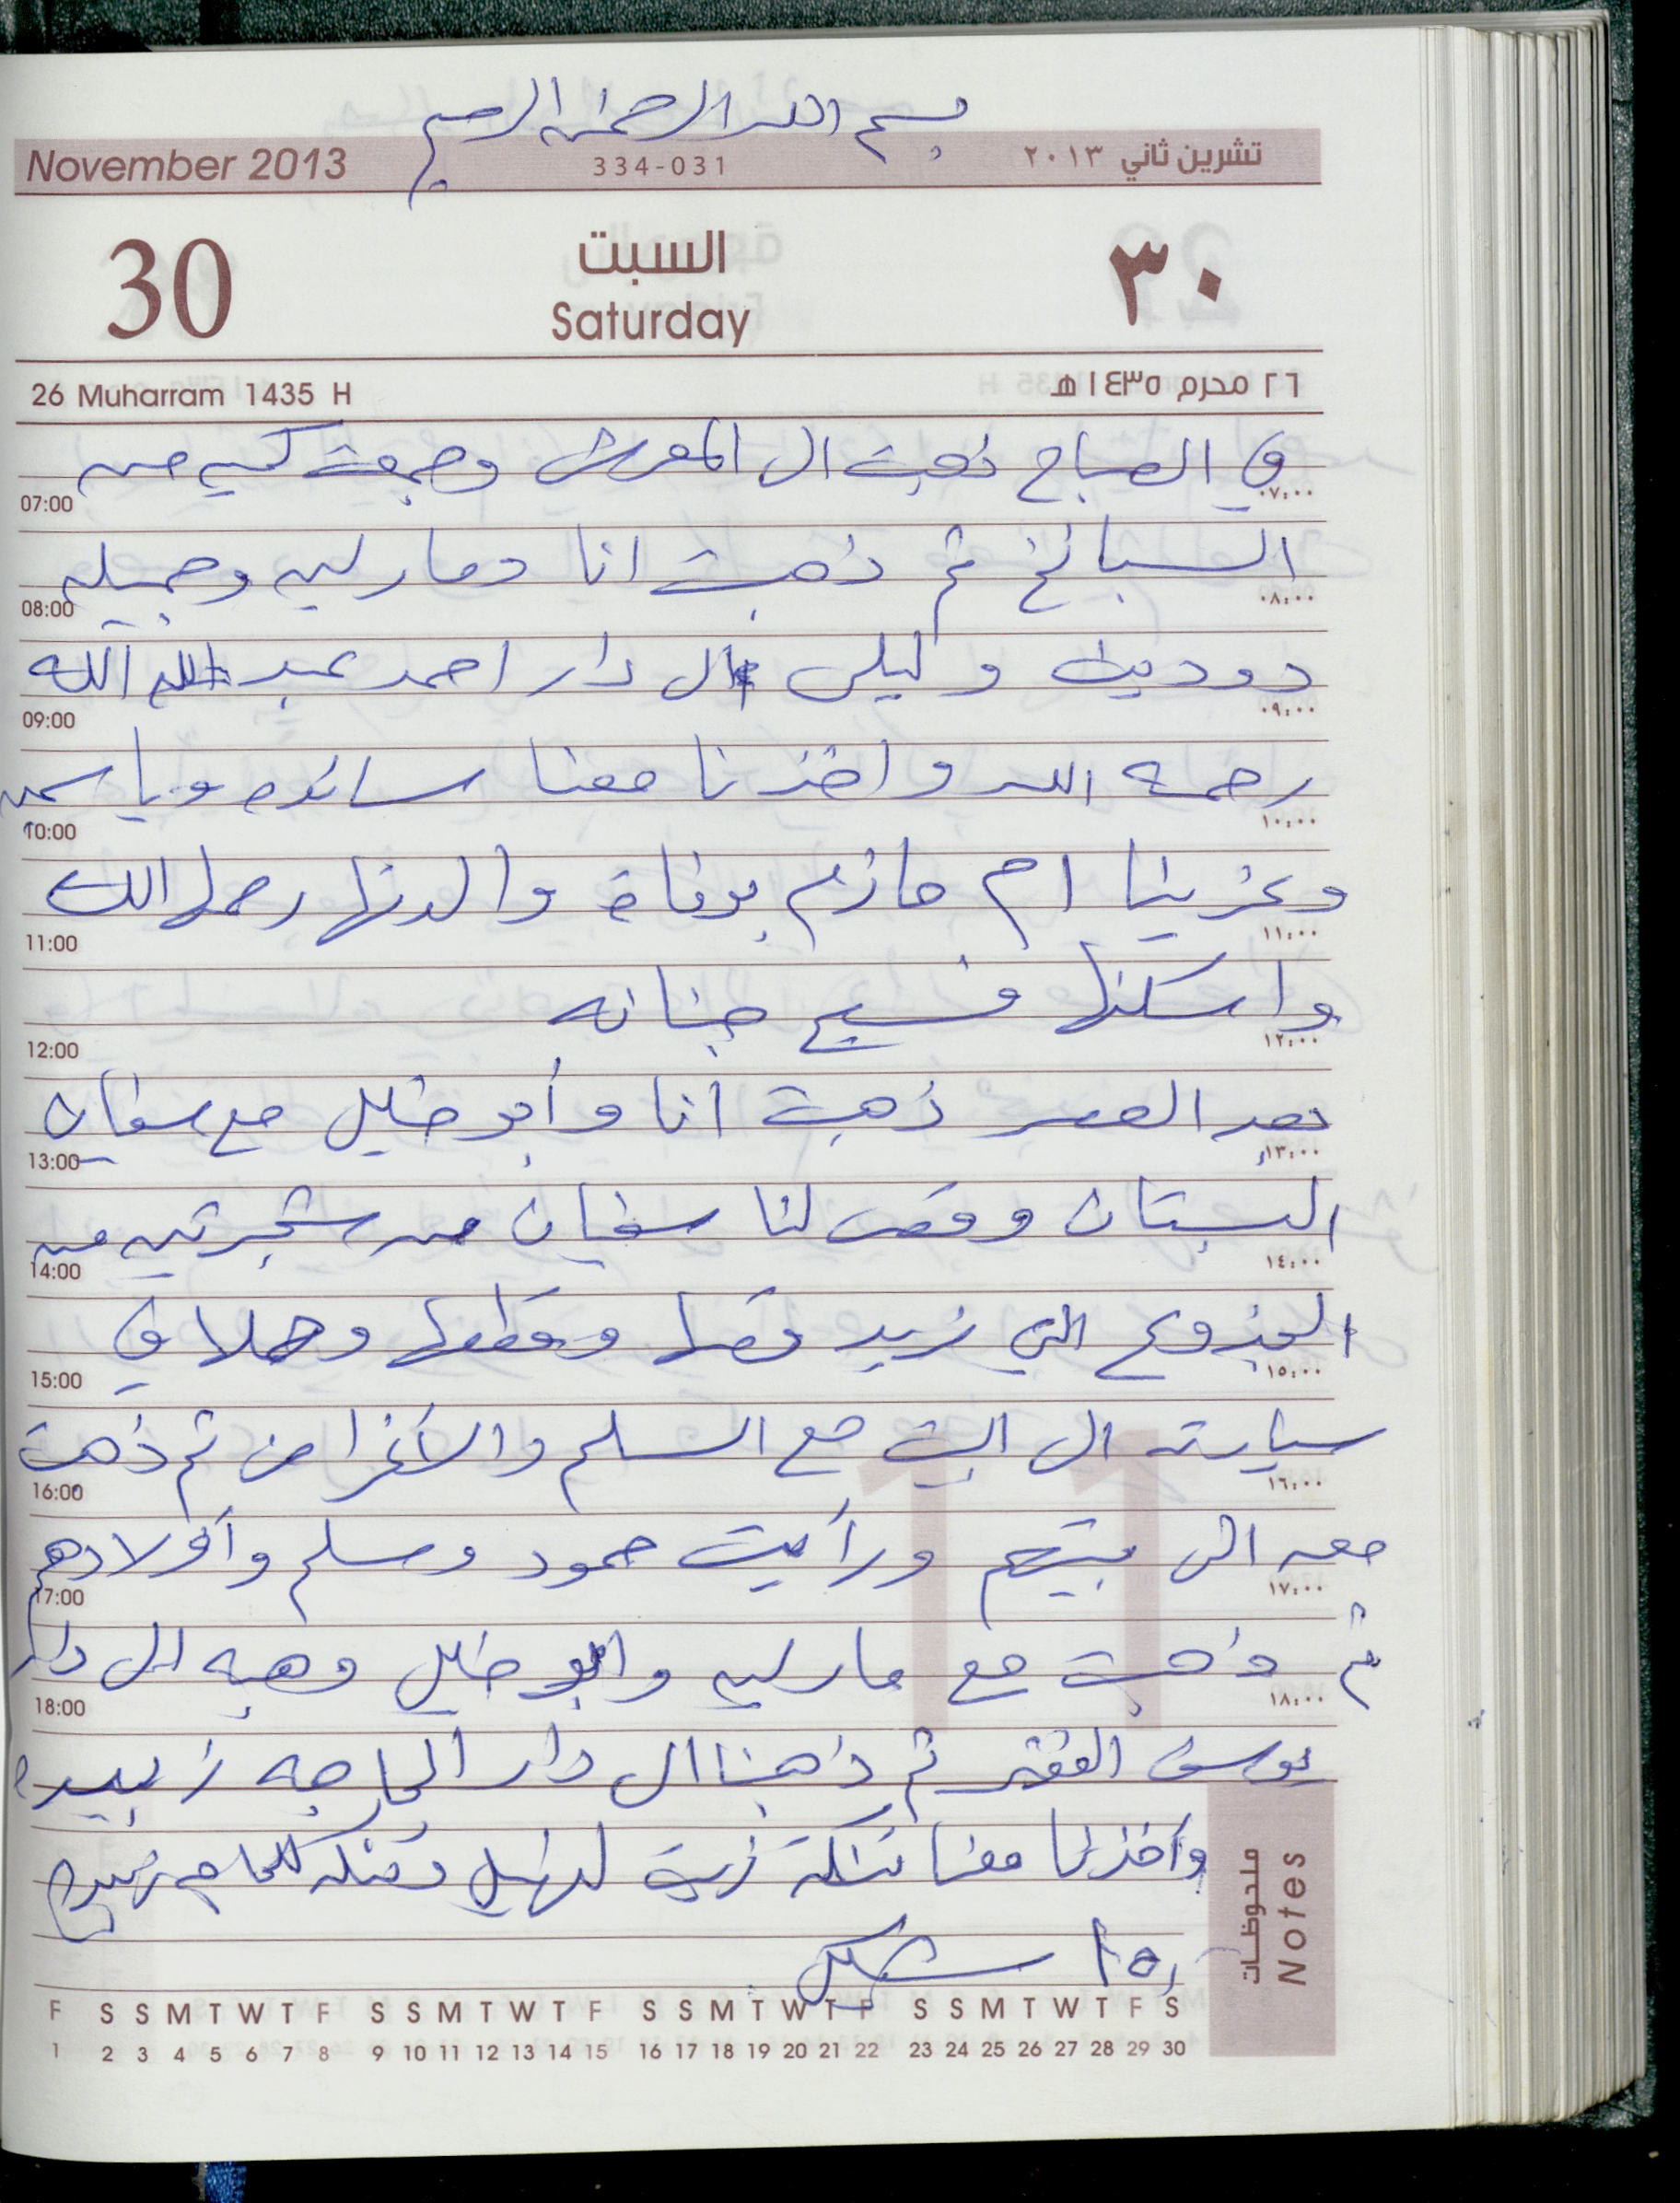 بسم الله الرحمن الرحيم
November 2013 334-031 تشرين ثاني ٢٠١٣
30 السبت ٣٠
Saturday
26 Muharram 1435 H ٢٦ محرم ١٤٣٥ هـ
في الصباح ذهبت الى المعرش وجمعت كمية من
07:00 ٠٧:٠٠
السبانخ ثم ذهبت انا ومارلين وجميله
08:00 ٠٨:٠٠
دودين وليلى الى دار احمد عبد الله
09:00 ٠٩:٠٠
رحمه الله واخذنا معنا سائده وياسمين
10:00 ١٠:٠٠
وعزينا ام حازم بوفاة والدتها رحمها الله
11:00 ١١:٠٠
واسكنها فسيح جنانه
12:00 ١٢:٠٠
بعد العصر ذهبت أنا وأبو خليل مع سفيان
13:00 ١٣:٠٠
البستان وقص لنا سفيان من شجرتين من
14:00 ١٤:٠٠
الجذوع التي نريد قصها وقطعها وحملا في
15:00 ١٥:٠٠
سيارته الى البيت مع السلم والأغراض ثم ذهبت
16:00 ١٦:٠٠
معه الى بيتهم ورأيت حمود وسلم وأولادهم
17:00 ١٧:٠٠
ثم ذهبت مع مارلين وابو خليل وهبه الى دار
18:00 ١٨:٠٠
يوسف الفقير ثم ذهبنا الى دار الحاجه زبيده
وأخذنا معنا تنكة زيت وتنكه للحاجه زبيده
ب ١٥ شيكل
ملحوظات
Notes
F S S M T W T F S S M T W T F S S M T W T F S S M T W T F S
1 2 3 4 5 6 7 8 9 10 11 12 13 14 15 16 17 18 19 20 21 22 23 24 25 26 27 28 29 30